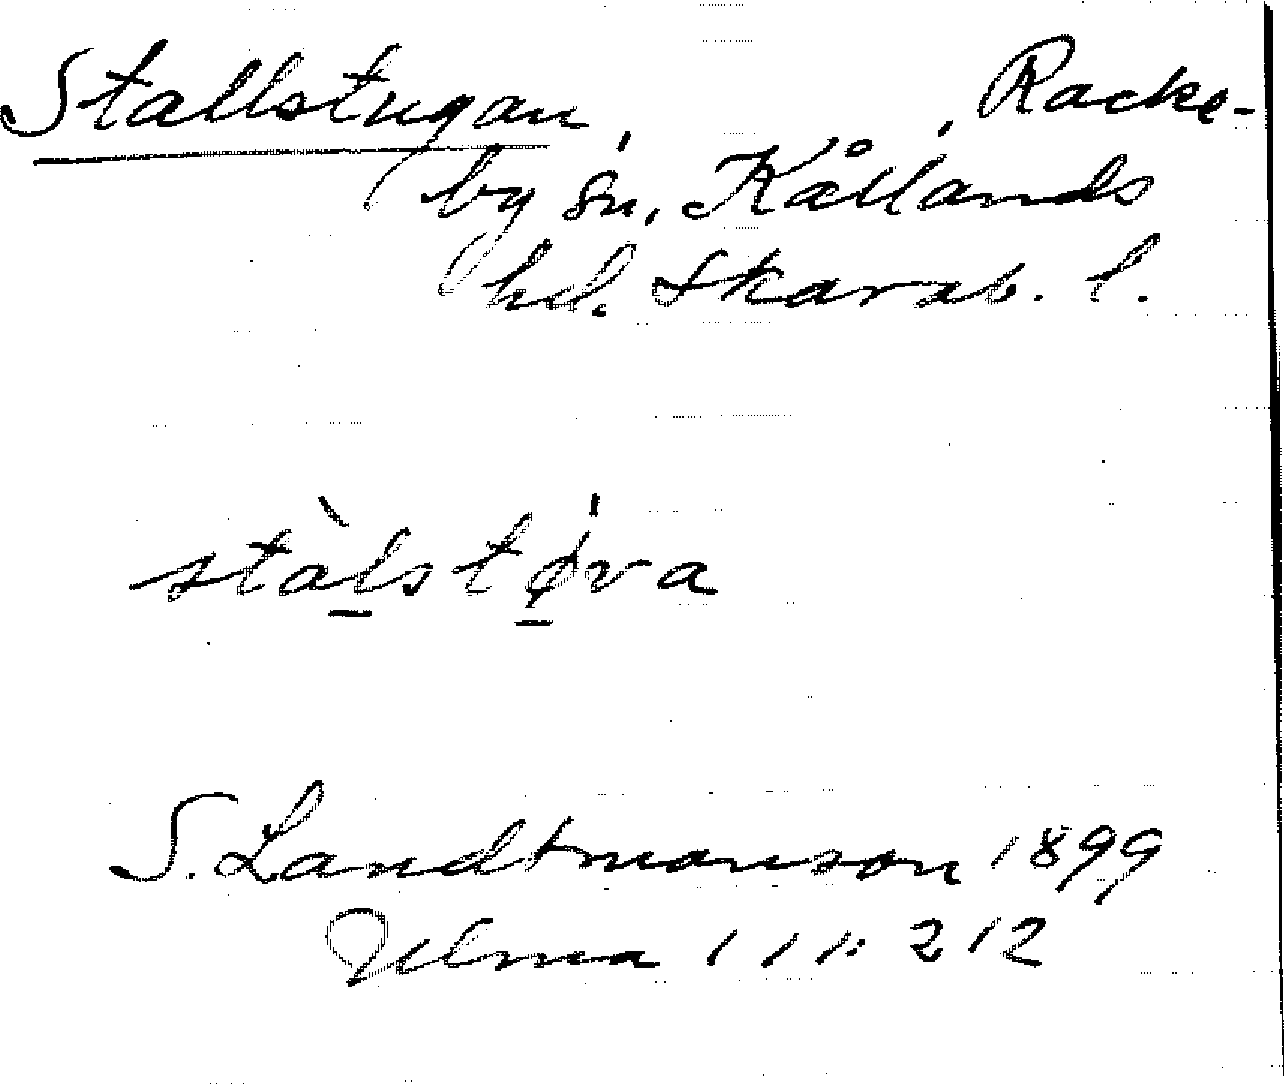 Stallstugan, Racke-
by sn, Kållands
hd. Skarab. l.
stàl̲stǿ̲va
S. Landtmanson 1899
Ulma 111:212